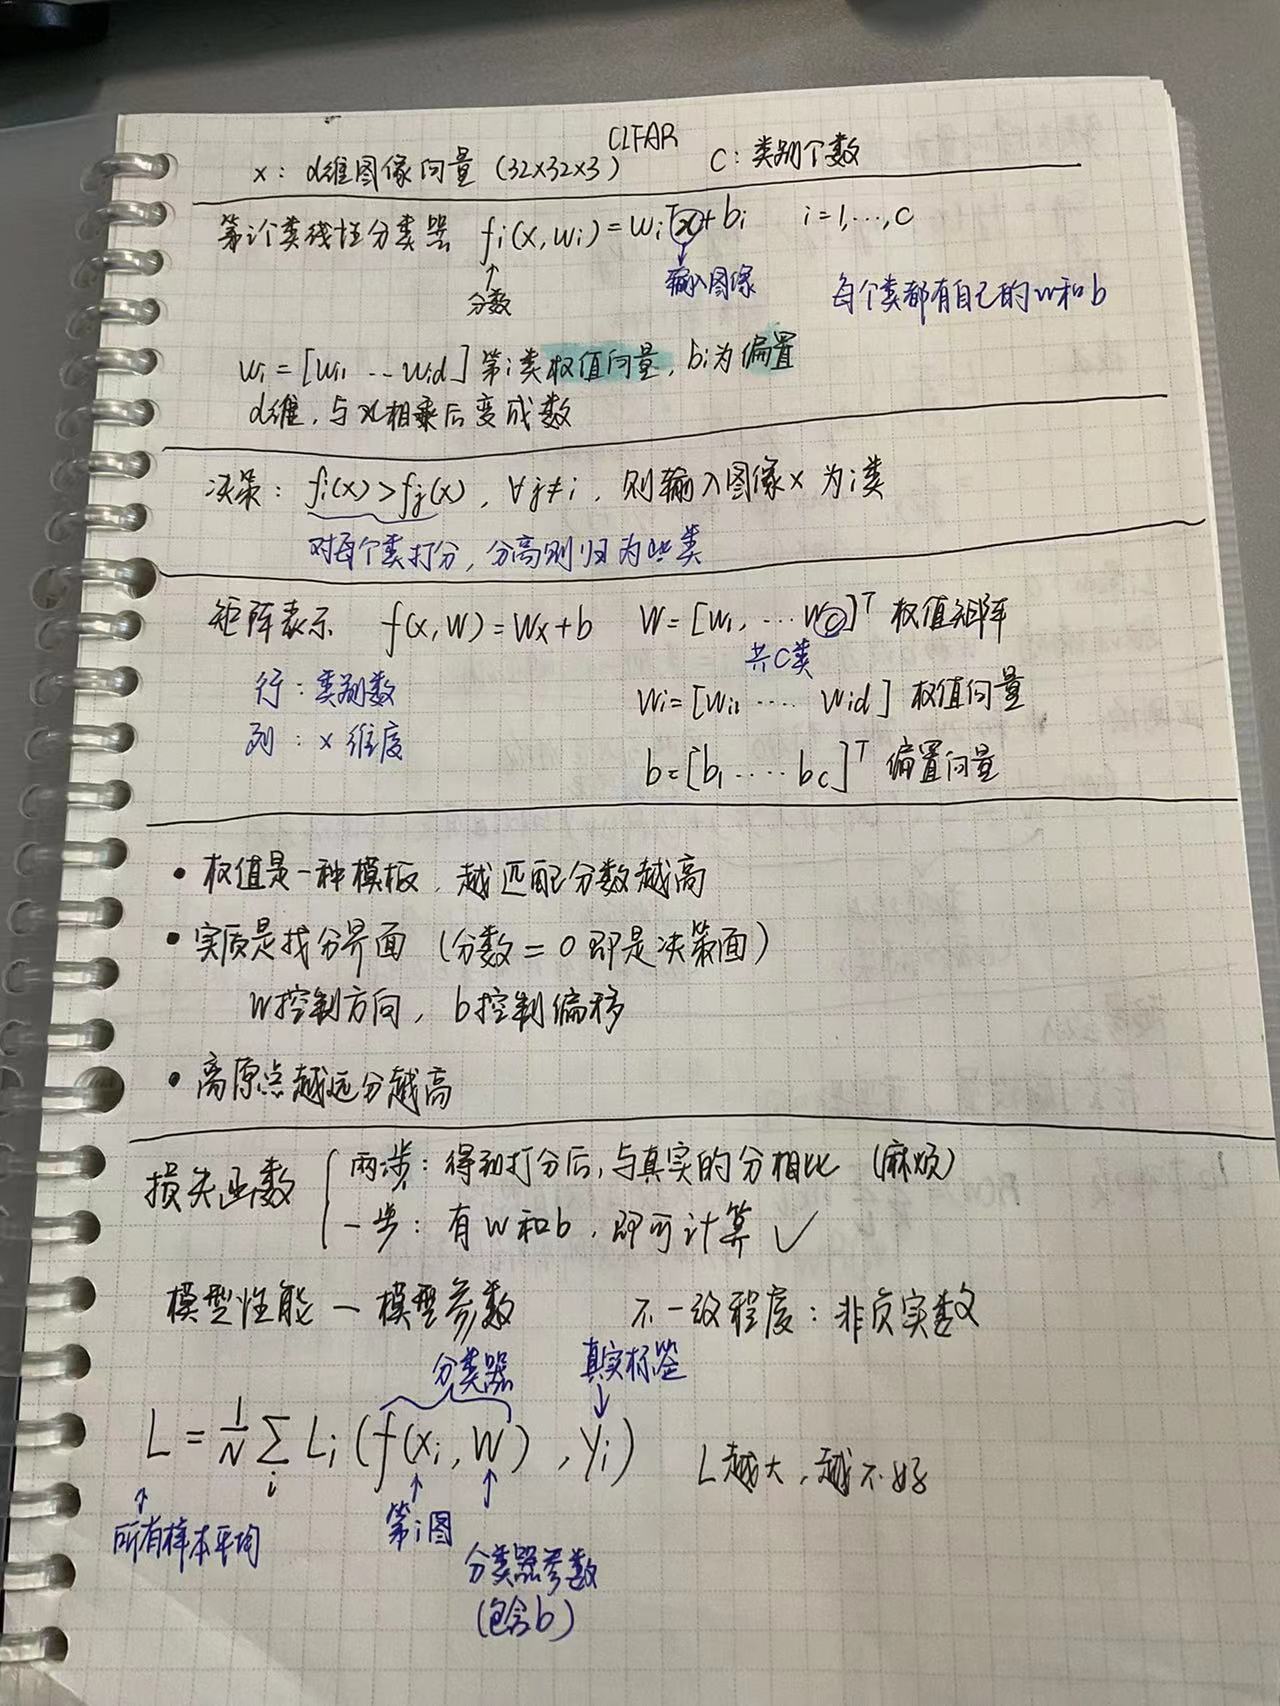 CIFAR
x: d维图像向量 (32×32×3) C: 类别个数
第i个类线性分类器 fi(x, wi) = wiᵀx + bi i=1,...,c
分数 输入图像 每个类都有自己的w和b
wi = [wi1 ... wid] 第i类权值向量, bi为偏置
d维, 与x相乘后变成数
决策: fi(x) > fj(x), ∀j≠i, 则输入图像x 为i类
对每个类打分, 分高则归为此类
矩阵表示 f(x, W) = Wx + b W = [w1, ... wc]ᵀ 权值矩阵
共C类
行: 类别数 wi = [wi1 .... wid] 权值向量
列: x 维度
b = [b1 .... bc]ᵀ 偏置向量
• 权值是一种模板, 越匹配分数越高
• 实质是找分界面 (分数 = 0 即是决策面)
w控制方向, b控制偏移
• 离原点越远分越高
损失函数 { 两步: 得到打分后, 与真实的分相比 (麻烦)
一步: 有w和b, 即可计算 ✓
模型性能 — 模型参数 不一致程度: 非负实数
分类器 真实标签
L = 1/N ∑i Li (f(xi, W), yi) L越大, 越不好
所有样本平均 第i图
分类器参数
(包含b)